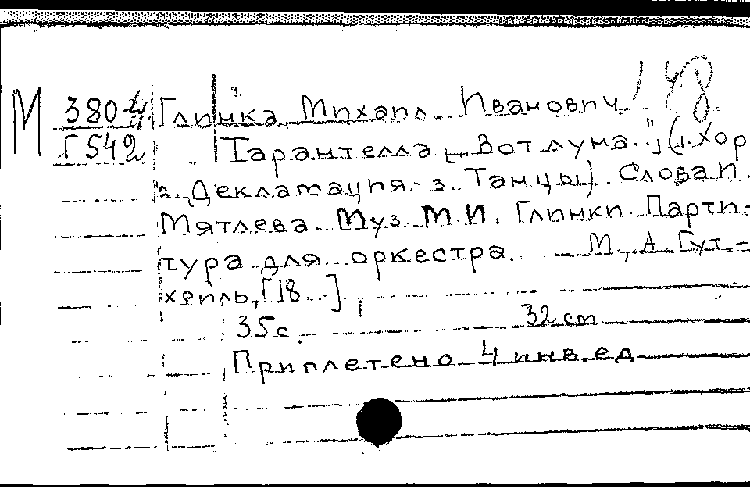 М 3804 Глинка Михаил Иванович
Г542 Тарантелла „Вот дума..." (1. Хор
2. Декламация. 3. Танцы). Слова И.
Мятлева. Муз. М.И. Глинки. Парти-
тура для оркестра. М., А. Гут-
хейль, [18..]
35с. 32 cm
Приплетено 4 инв.ед.